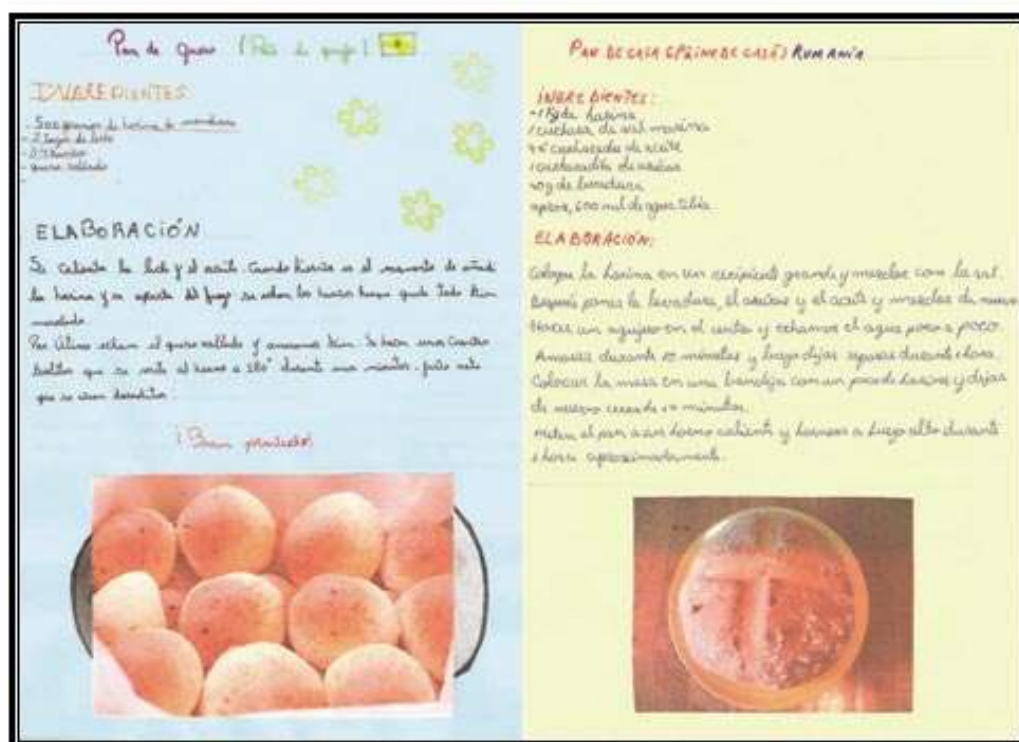 Pan de queso (Pão de queijo)
INGREDIENTES
- 500 gramos de harina de mandioca
- 2 tazas de leche
- huevos
- queso rallado
ELABORACIÓN
Se calienta la leche y el aceite. Cuando hierva es el momento de añadir
la harina y se aparta del fuego se echan los huevos hasta quede todo bien
mezclado.
Por último echan el queso rallado y amasamos bien. Se hacen unas cuantas
bolitas que se mete al horno a 180° durante unos minutos, hasta
que se vean doraditos.
¡Buen provecho!
PAN DE CASA (PÂINE DE CASĂ) RUMANÍA
INGREDIENTES:
-1 Kg de harina
1 cuchara de sal marina
cucharadas de aceite
1 cucharadita de azúcar
g de levadura
aprox, 600 ml de agua tibia
ELABORACIÓN:
Coloque la harina en un recipiente grande y mezclar con la sal.
Después pones la levadura, el azúcar y el aceite y mezclas de nuevo
Haces un agujero en el centro y echamos el agua poco a poco.
Amasas durante 10 minutos y luego dejas reposar durante 1 hora.
Colocar la masa en una bandeja con un poco de harina y dejas
de nuevo minutos.
meten el pan a un horno caliente y hornear a fuego alto durante
1 hora aproximadamente.